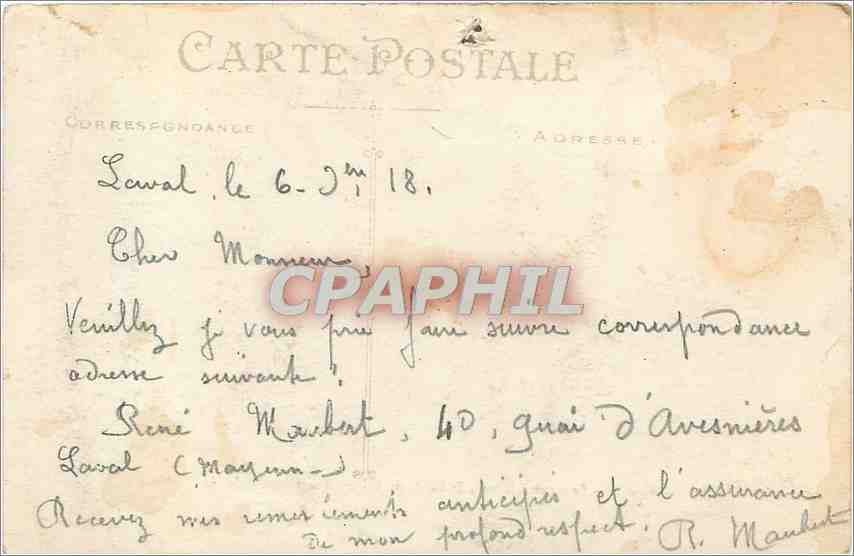 CARTE POSTALE
CORRESPONDANCE
ADRESSE
Laval, le 6-Jer 18.
Cher Monsieur,
CPAPHIL
Veuillez je vous prie faire suivre correspondance
adresse suivante :
René Maubert, 40, quai d'Avesnières
Laval (Mayenne)
Recevez mes remerciements anticipés et l'assurance
de mon profond respect. R. Maubert